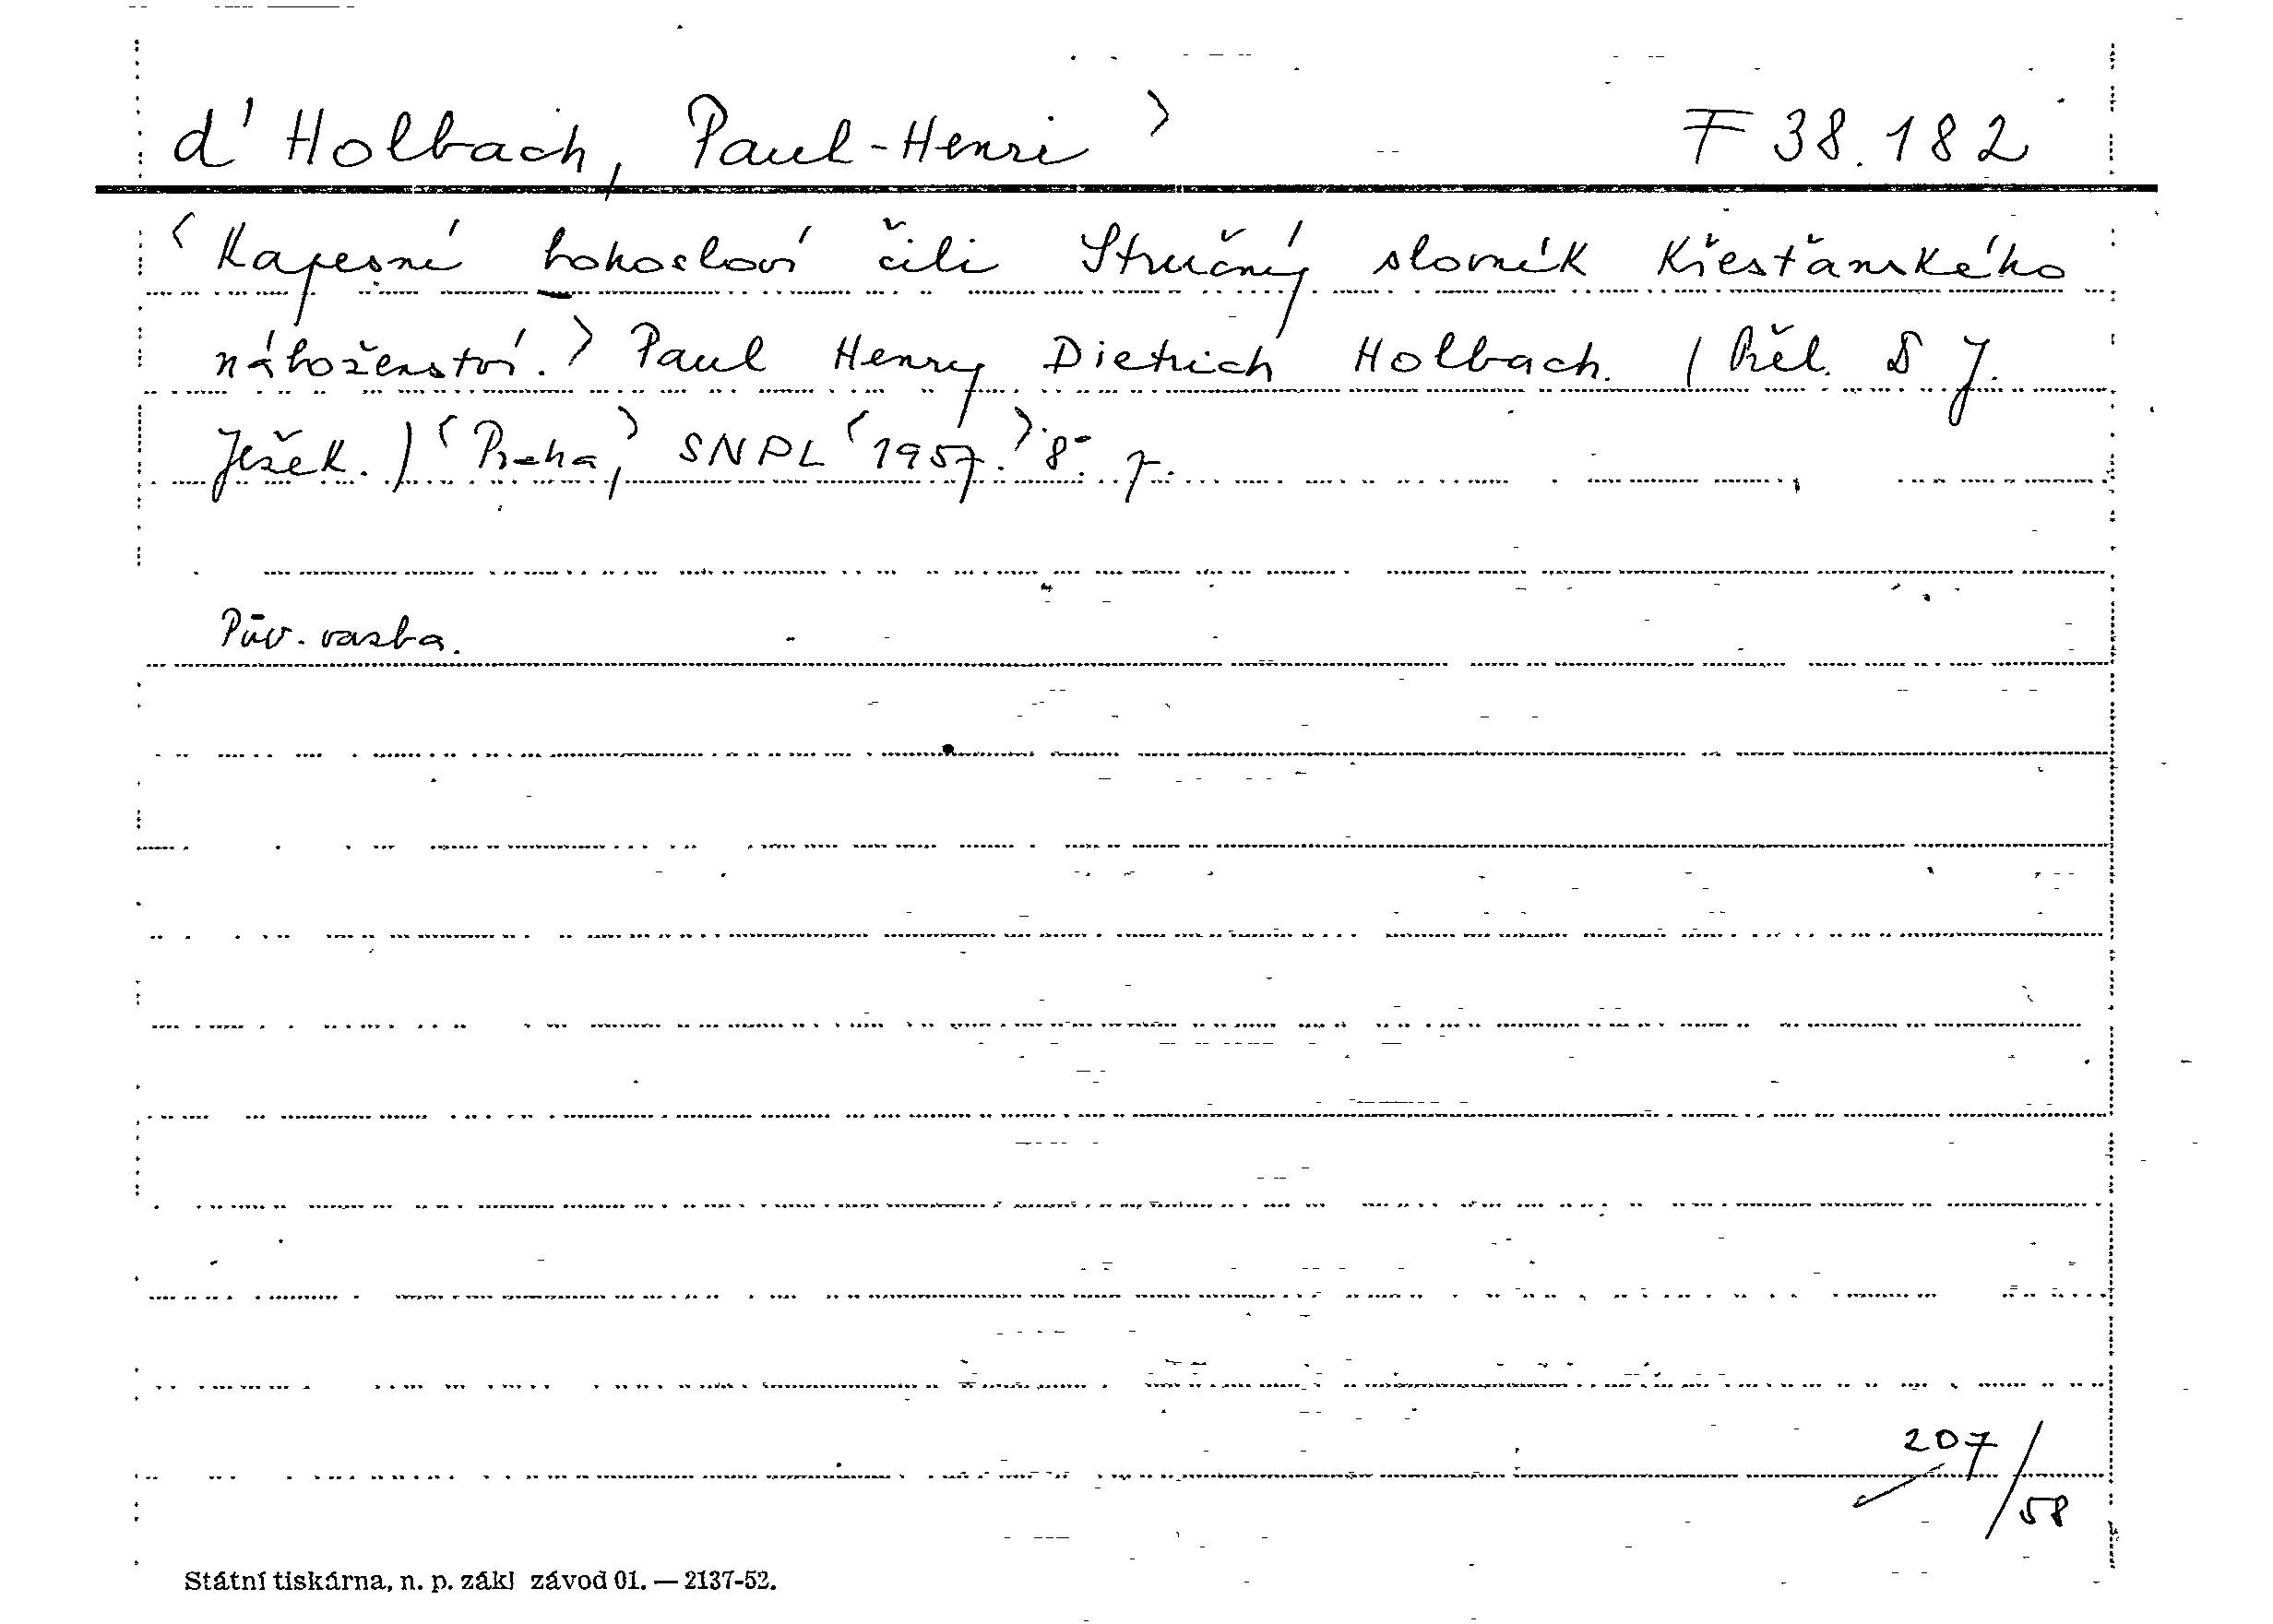 d' Holbach, Paul-Henri > F 38.182
<Kapesní bohosloví čili Stručný slovník křesťanského
náboženství.> Paul Henry Dietrich Holbach. (Přel. D J.
Ježek.) <Praha,> SNPL <1957.> 8°. 7.
Pův. vazba.
207/58
Státní tiskárna, n. p. zákl závod 01. — 2137-52.